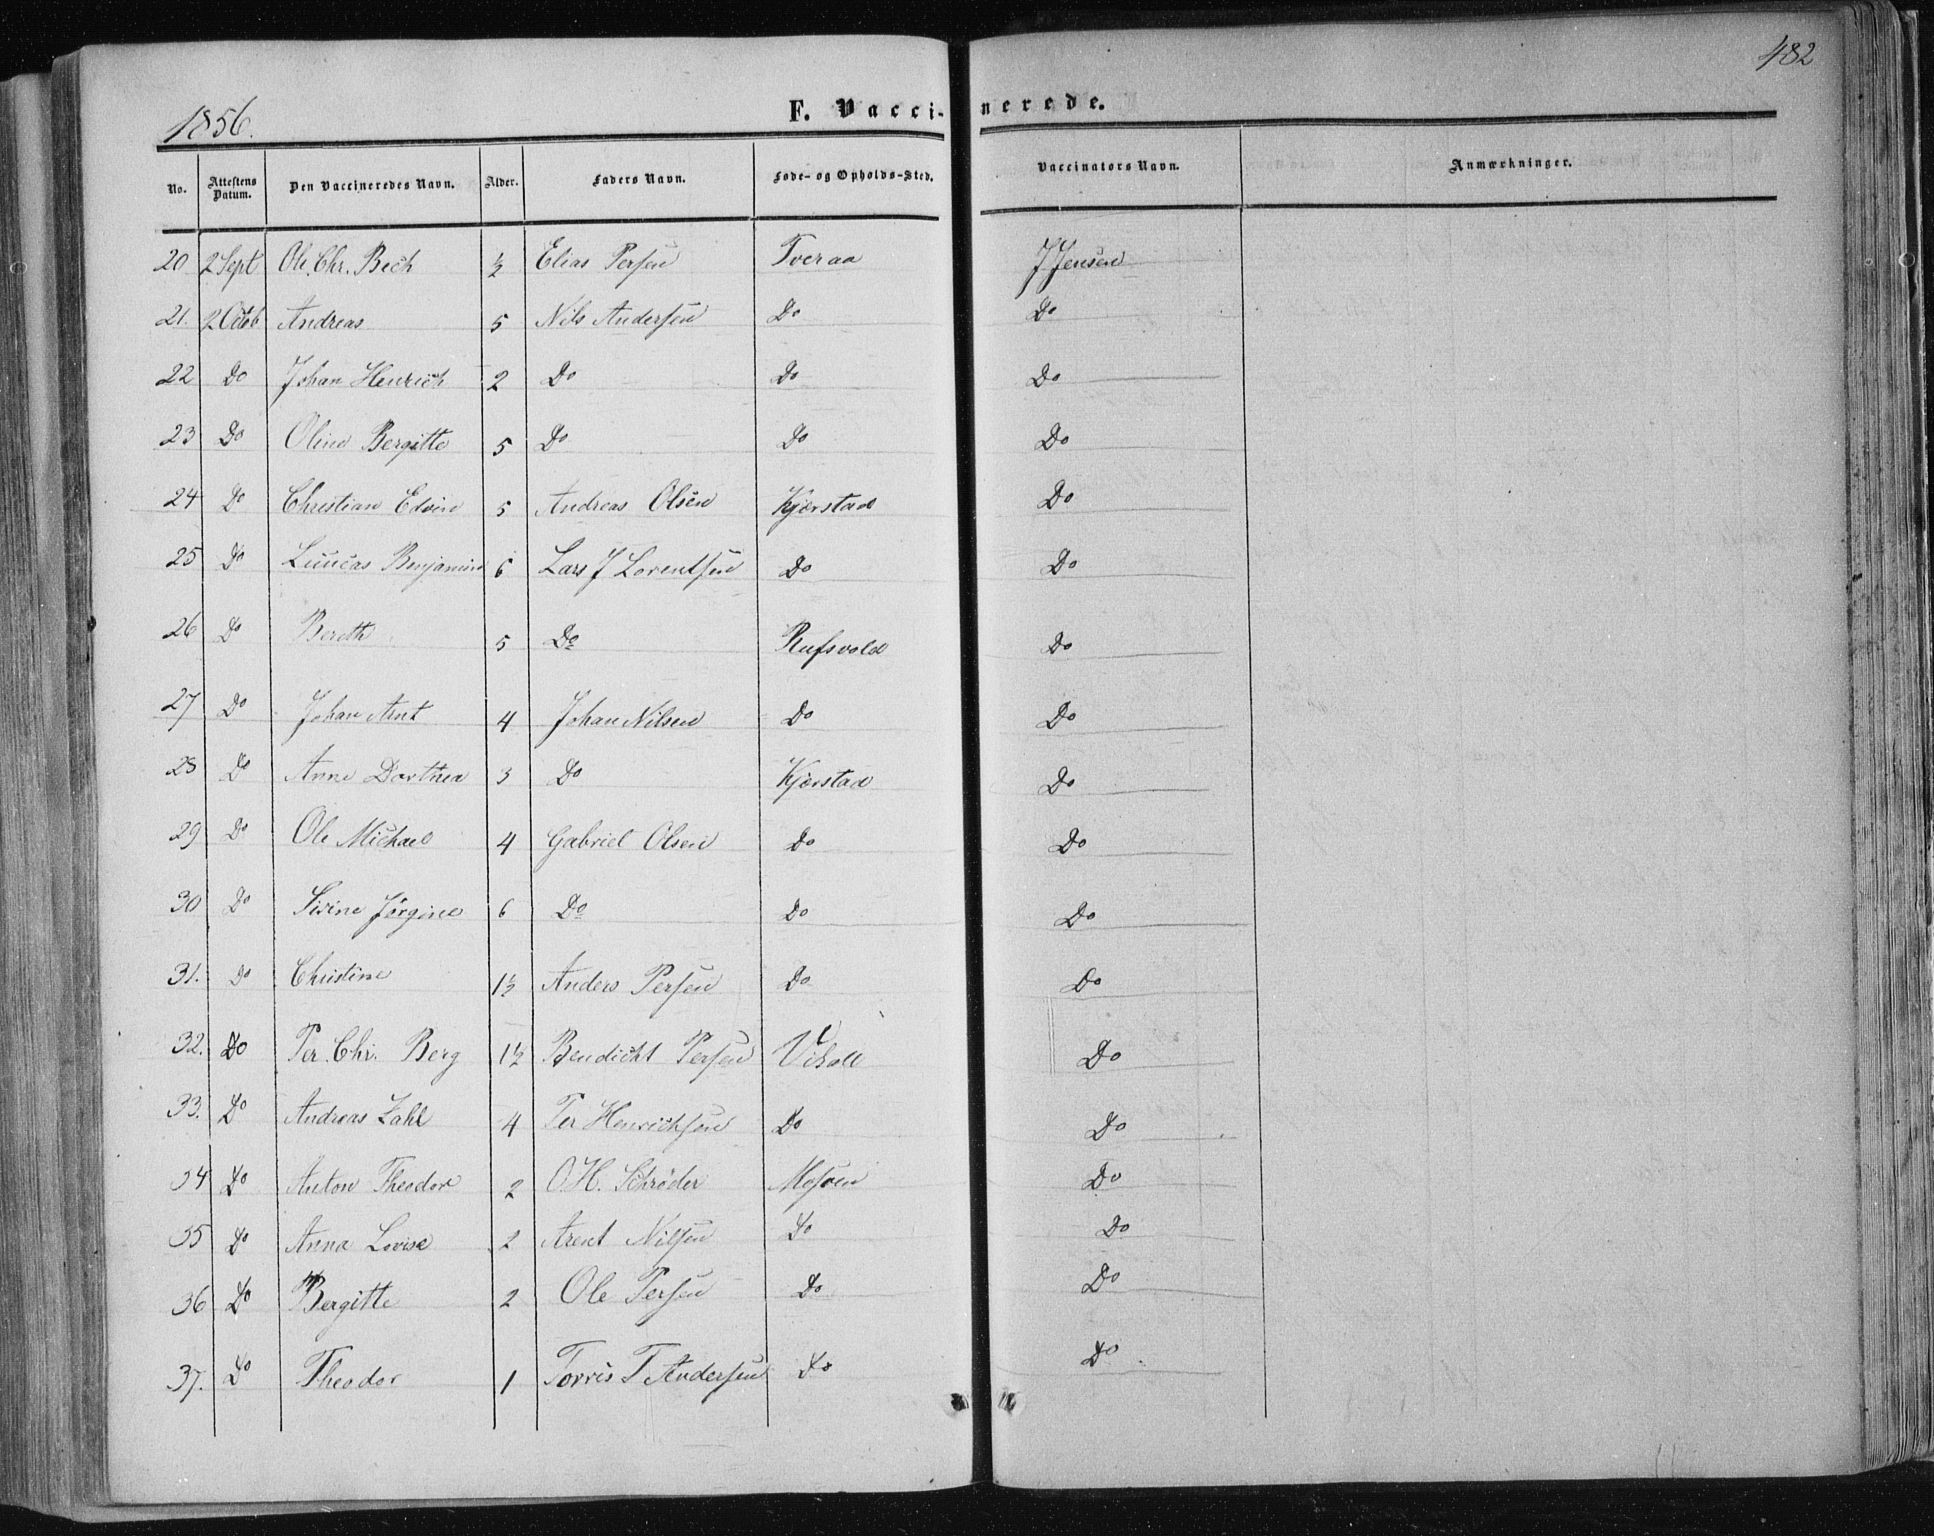 482
1856.
F. Vaccinerede.
No. Attestens Datum. Den Vaccineredes Navn. Alder. Faders Navn. Føde- og Opholds-Sted. Vaccinators Navn. Anmærkninger.
20 2 Sept Ole Chr. Bech ½ Elias Persen Tveraa J Jensen
21. 2 Octb Andreas 5 Nils Andersen Do Do
22 Do Johan Henrich 2 Do Do Do
23 Do Oline Bergitte 5 Do Do Do
24 Do Christian Edvin 5 Andreas Olsen Kjerstad Do
25 Do Luucas Benjamin 6 Lars J Lorentsen Do Do
26 Do Bereth 5 Do Rufsvold Do
27 Do Johan Arnt 4 Johan Nilsen Do Do
28 Do Anne Dorthea 3 Do Kjerstad Do
29 Do Ole Michael 4 Gabriel Olsen Do Do
30 Do Sivine Jørgine 6 Do Do Do
31. Do Christine 1½ Anders Persen Do Do
32. Do Per Chr. Berg 1½ Bendicht Persen Do
33. Do Andreas Zahl 4 Per Henrichsen Do Do
34 Do Anton Theodor 2 O H. Schrøder Mosoen Do
35 Do Anna Lovise 2 Arent Nilsen Do Do
36 Do Bergitte 2 Ole Persen Do Do
37. Do Theodor 1 Torris T Andersen Do Do